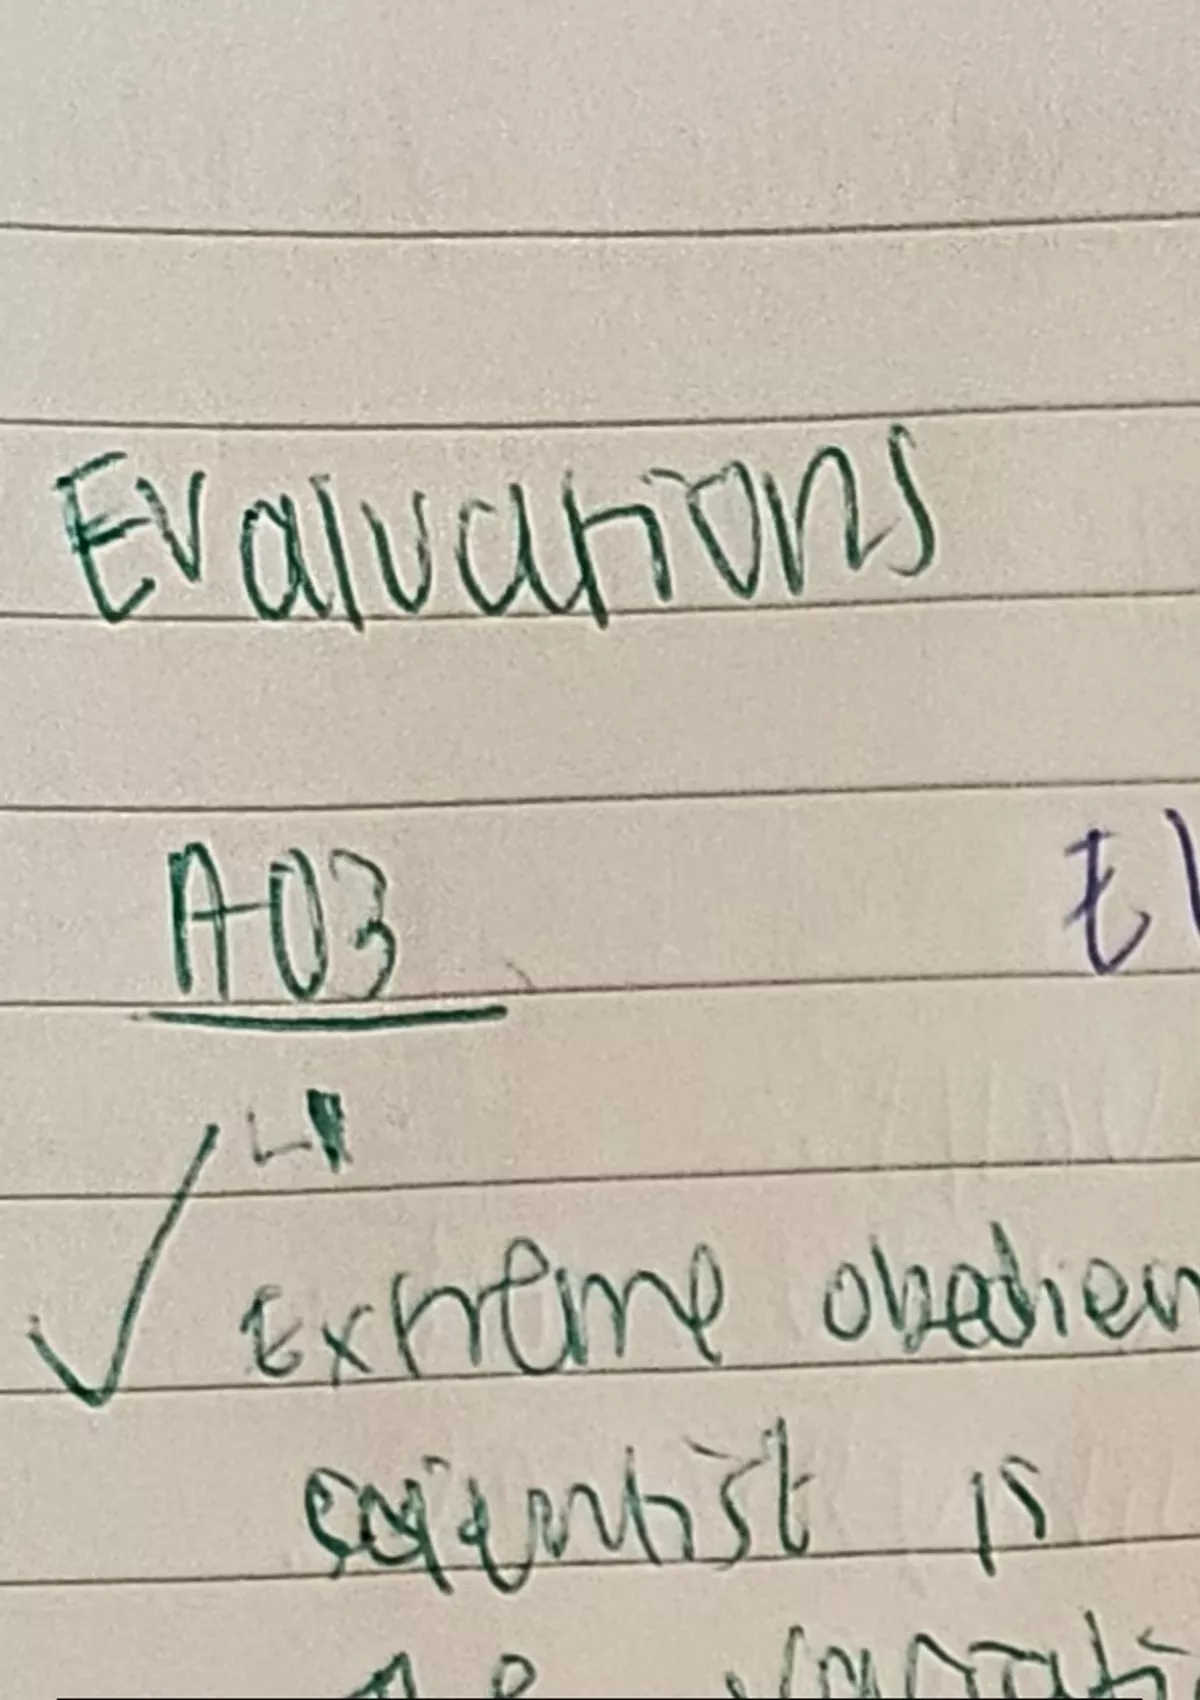 Evaluations
AO3
Extreme obedien
scientist is